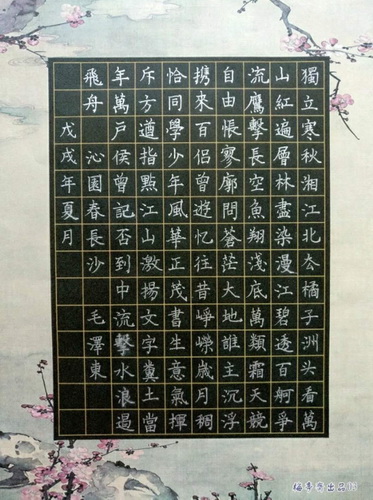 獨立寒秋湘江北厺橘子洲头看萬
山紅遍層林盡染漫江碧透百舸爭
流鷹擊長空魚翔淺底萬類霜天競
自由悵寥廓問蒼茫大地誰主沉浮
携來百侣曾遊忆往昔崢嶸歲月稠
恰同學少年風華正茂書生意氣揮
斥方遒指點江山激揚文字糞土當
年萬戶侯曾記否到中流擊水浪遏
飛舟 沁園春長沙 毛澤東
戊戌年夏月